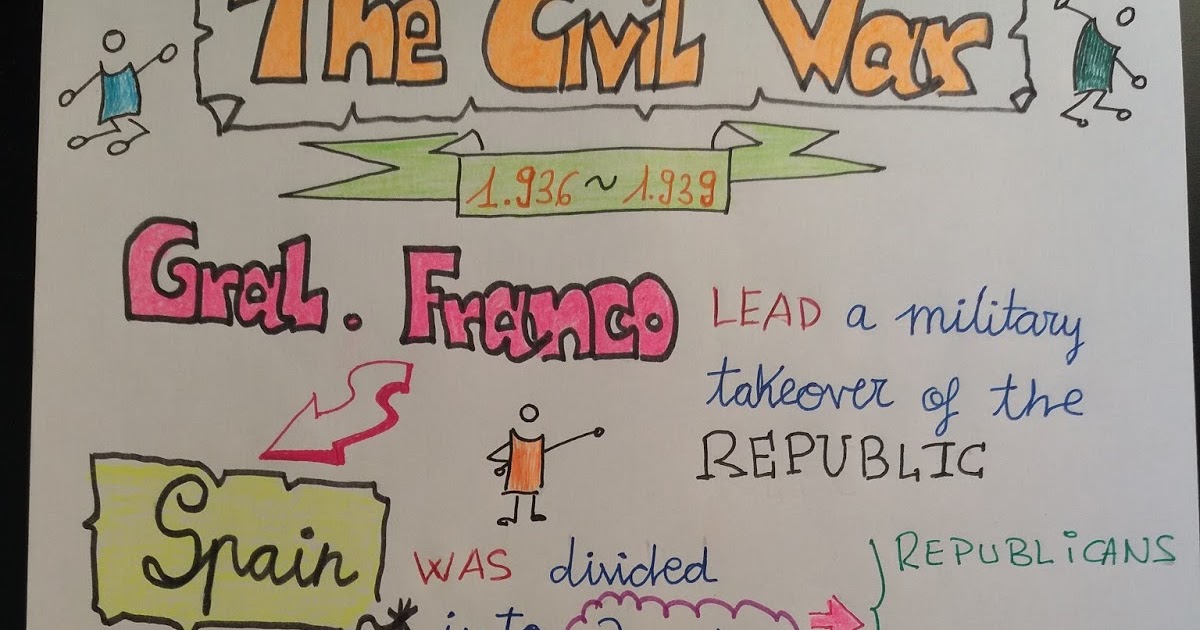 The Civil War
1.936 ~ 1.939
Gral. Franco
LEAD a military
takeover of the
REPUBLIC
Spain
WAS divided
into 2
REPUBLiCANS